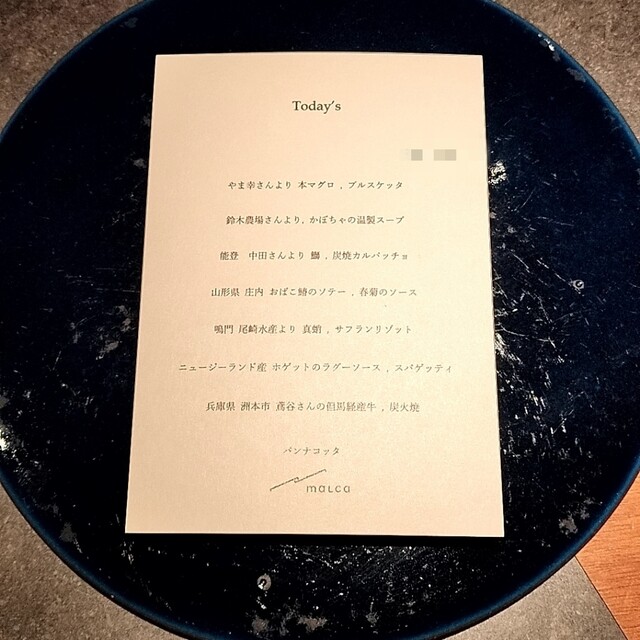 Today's
やま幸さんより 本マグロ , ブルスケッタ
鈴木農場さんより, かぼちゃの温製スープ
能登 中田さんより 鰤 , 炭焼カルパッチョ
山形県 庄内 おばこ鰆のソテー , 春菊のソース
鳴門 尾崎水産より 真蛸 , サフランリゾット
ニュージーランド産 ホゲットのラグーソース , スパゲッティ
兵庫県 洲本市 蔦谷さんの但馬経産牛 , 炭火焼
パンナコッタ
maLca